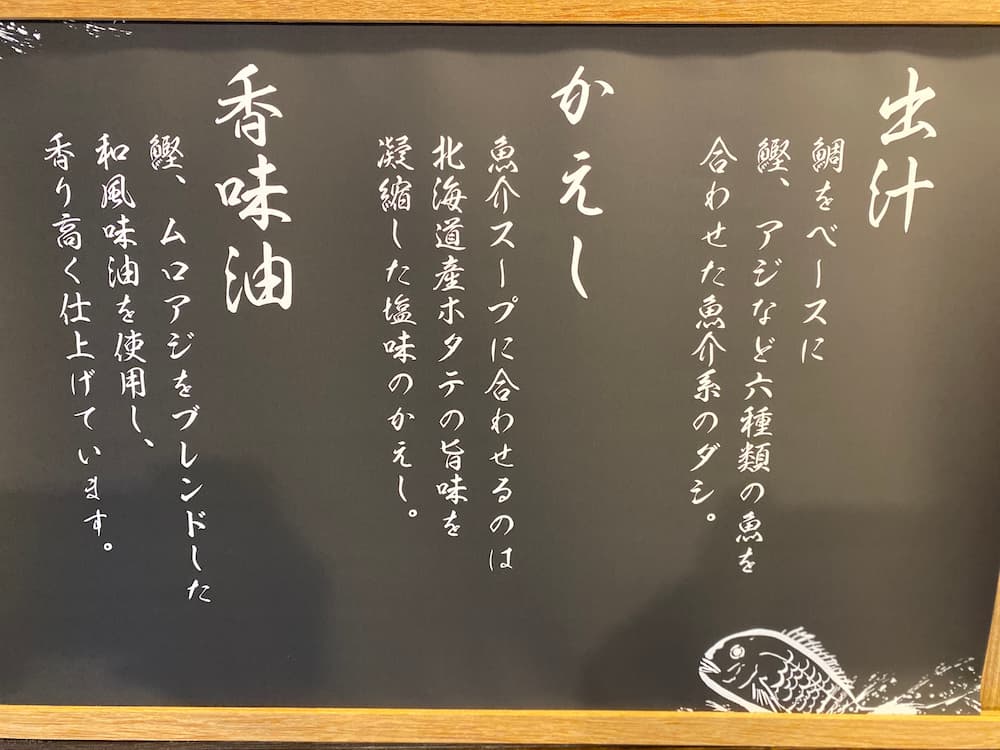 出汁
鯛をベースに
鰹、アジなど六種類の魚を
合わせた魚介系のダシ。
かえし
魚介スープに合わせるのは
北海道産ホタテの旨味を
凝縮した塩味のかえし。
香味油
鰹、ムロアジをブレンドした
和風味油を使用し、
香り高く仕上げています。